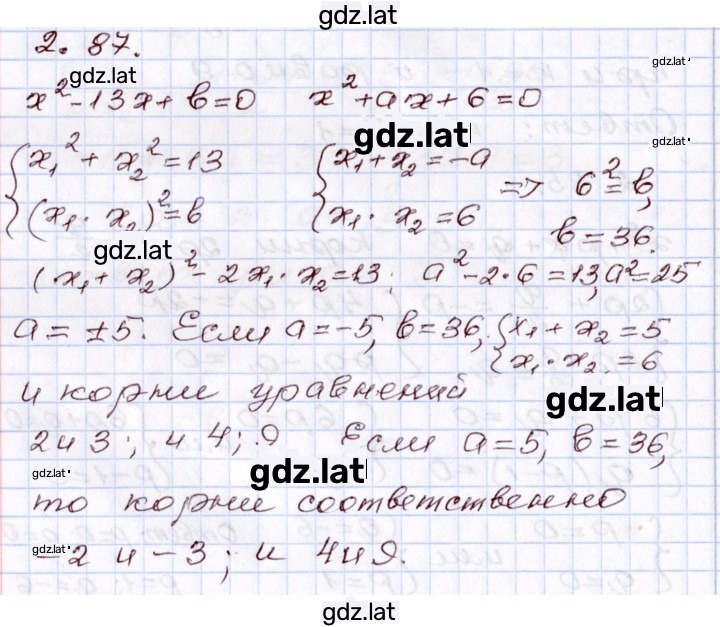 gdz.lat
2.87.
gdz.lat
gdz.lat
x²-13x+b=0   x²+ax+6=0
gdz.lat
gdz.lat
{x₁²+x₂²=13   {x₁+x₂=-a
{(x₁·x₂)²=b   {x₁·x₂=6   => 6²=b,
b=36.
gdz.lat
(x₁+x₂)²-2x₁·x₂=13; a²-2·6=13, a²=25
a=±5. Если a=-5, b=36, {x₁+x₂=5
{x₁·x₂=6
и корни уравнений
gdz.lat
2и3; и 4; 9   Если a=5, b=36,
gdz.lat
gdz.lat
то корни соответственно
gdz.lat
-2 и -3; и 4и9.
gdz.lat